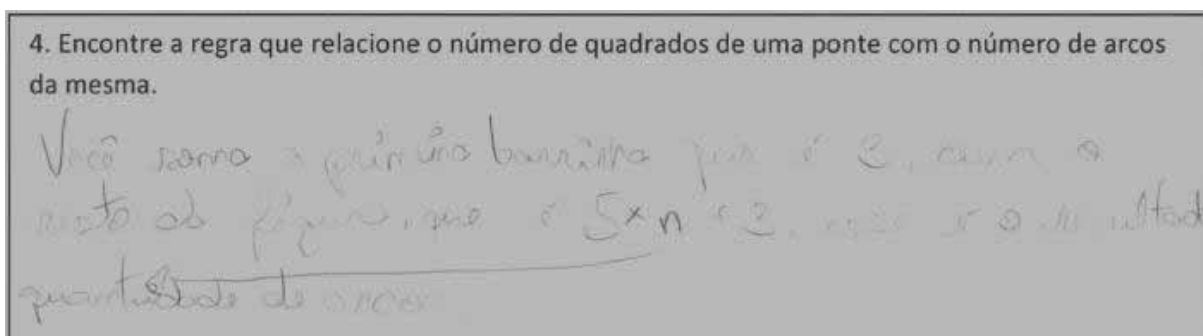 4. Encontre a regra que relacione o número de quadrados de uma ponte com o número de arcos
da mesma.
Você soma a primeira barrinha que é 3, com o
resto da figura, que é 5 x n + 3, esse é o resultad
quantidade de arcos